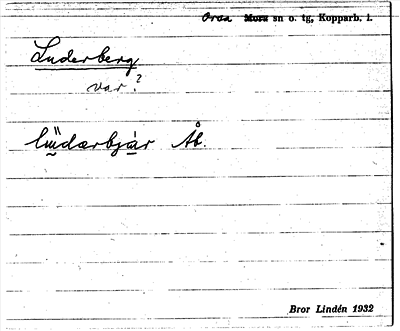 Orsa Mora sn o. tg, Kopparb. l.
Luderberg
var?
lüdærbjàr Åb.
Bror Lindén 1932